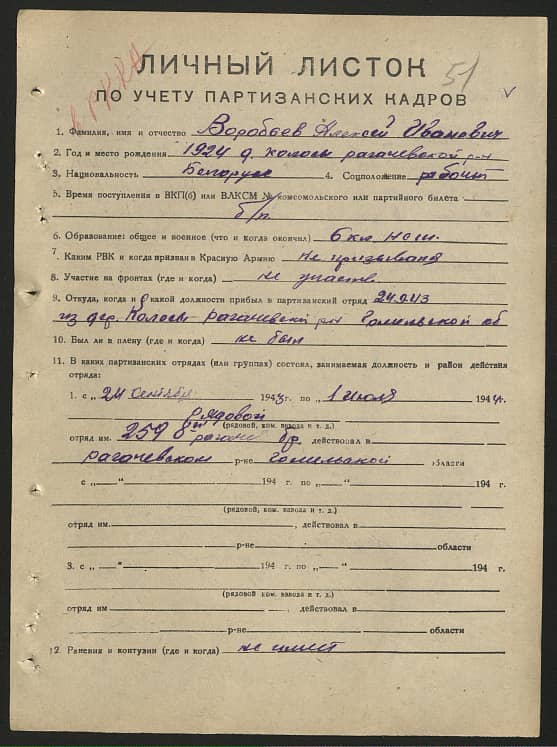 в РККА
51
V
ЛИЧНЫЙ ЛИСТОК
ПО УЧЕТУ ПАРТИЗАНСКИХ КАДРОВ
1. Фамилия, имя и отчество Воробьев Алексей Иванович
2. Год и место рождения 1924 д. Колосы рагачевской р-н
3. Национальность Белорус 4. Соцположение рабочий
5. Время поступления в ВКП(б) или ВЛКСМ № комсомольского или партийного билета
б/п.
6. Образование: общее и военное (что и когда окончил) 6 кл. нсш.
7. Каким РВК и когда призван в Красную Армию не призывался
8. Участие на фронтах (где и когда) не участв.
9. Откуда, когда и с какой должности прибыл в партизанский отряд 24.9.43
из дер. Колосы рагачевской р-н Гомельской об
10. Был ли в плену (где и когда) не был
11. В каких партизанских отрядах (или группах) состоял, занимаемая должность и район действия
отряда:
1. с „24 сентября 1943 г. по „1 июля 1944 г.
рядовой
(рядовой, ком. взвода и т. д.)
отряд им. 259 8ой рагачев бр. действовал в
рагачевском р-не гомельской области
с „ “ 194 г. по „ “ 194 г.
(рядовой, ком. взвода и т. д.)
отряд им. , действовал в
р-не области
3. с „ “ 194 г. по „ “ 194 г.
(рядовой ком. взвода и т. д.)
отряд им , действовал в
р-не области
12. Ранения и контузии (где и когда) не имеет